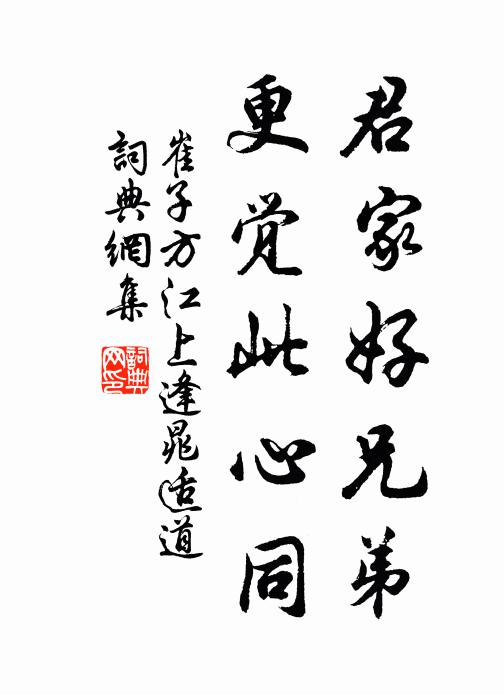 君家好兄弟
更觉此心同
崔子方江上逢晁适道
詞典網集
詞典網印